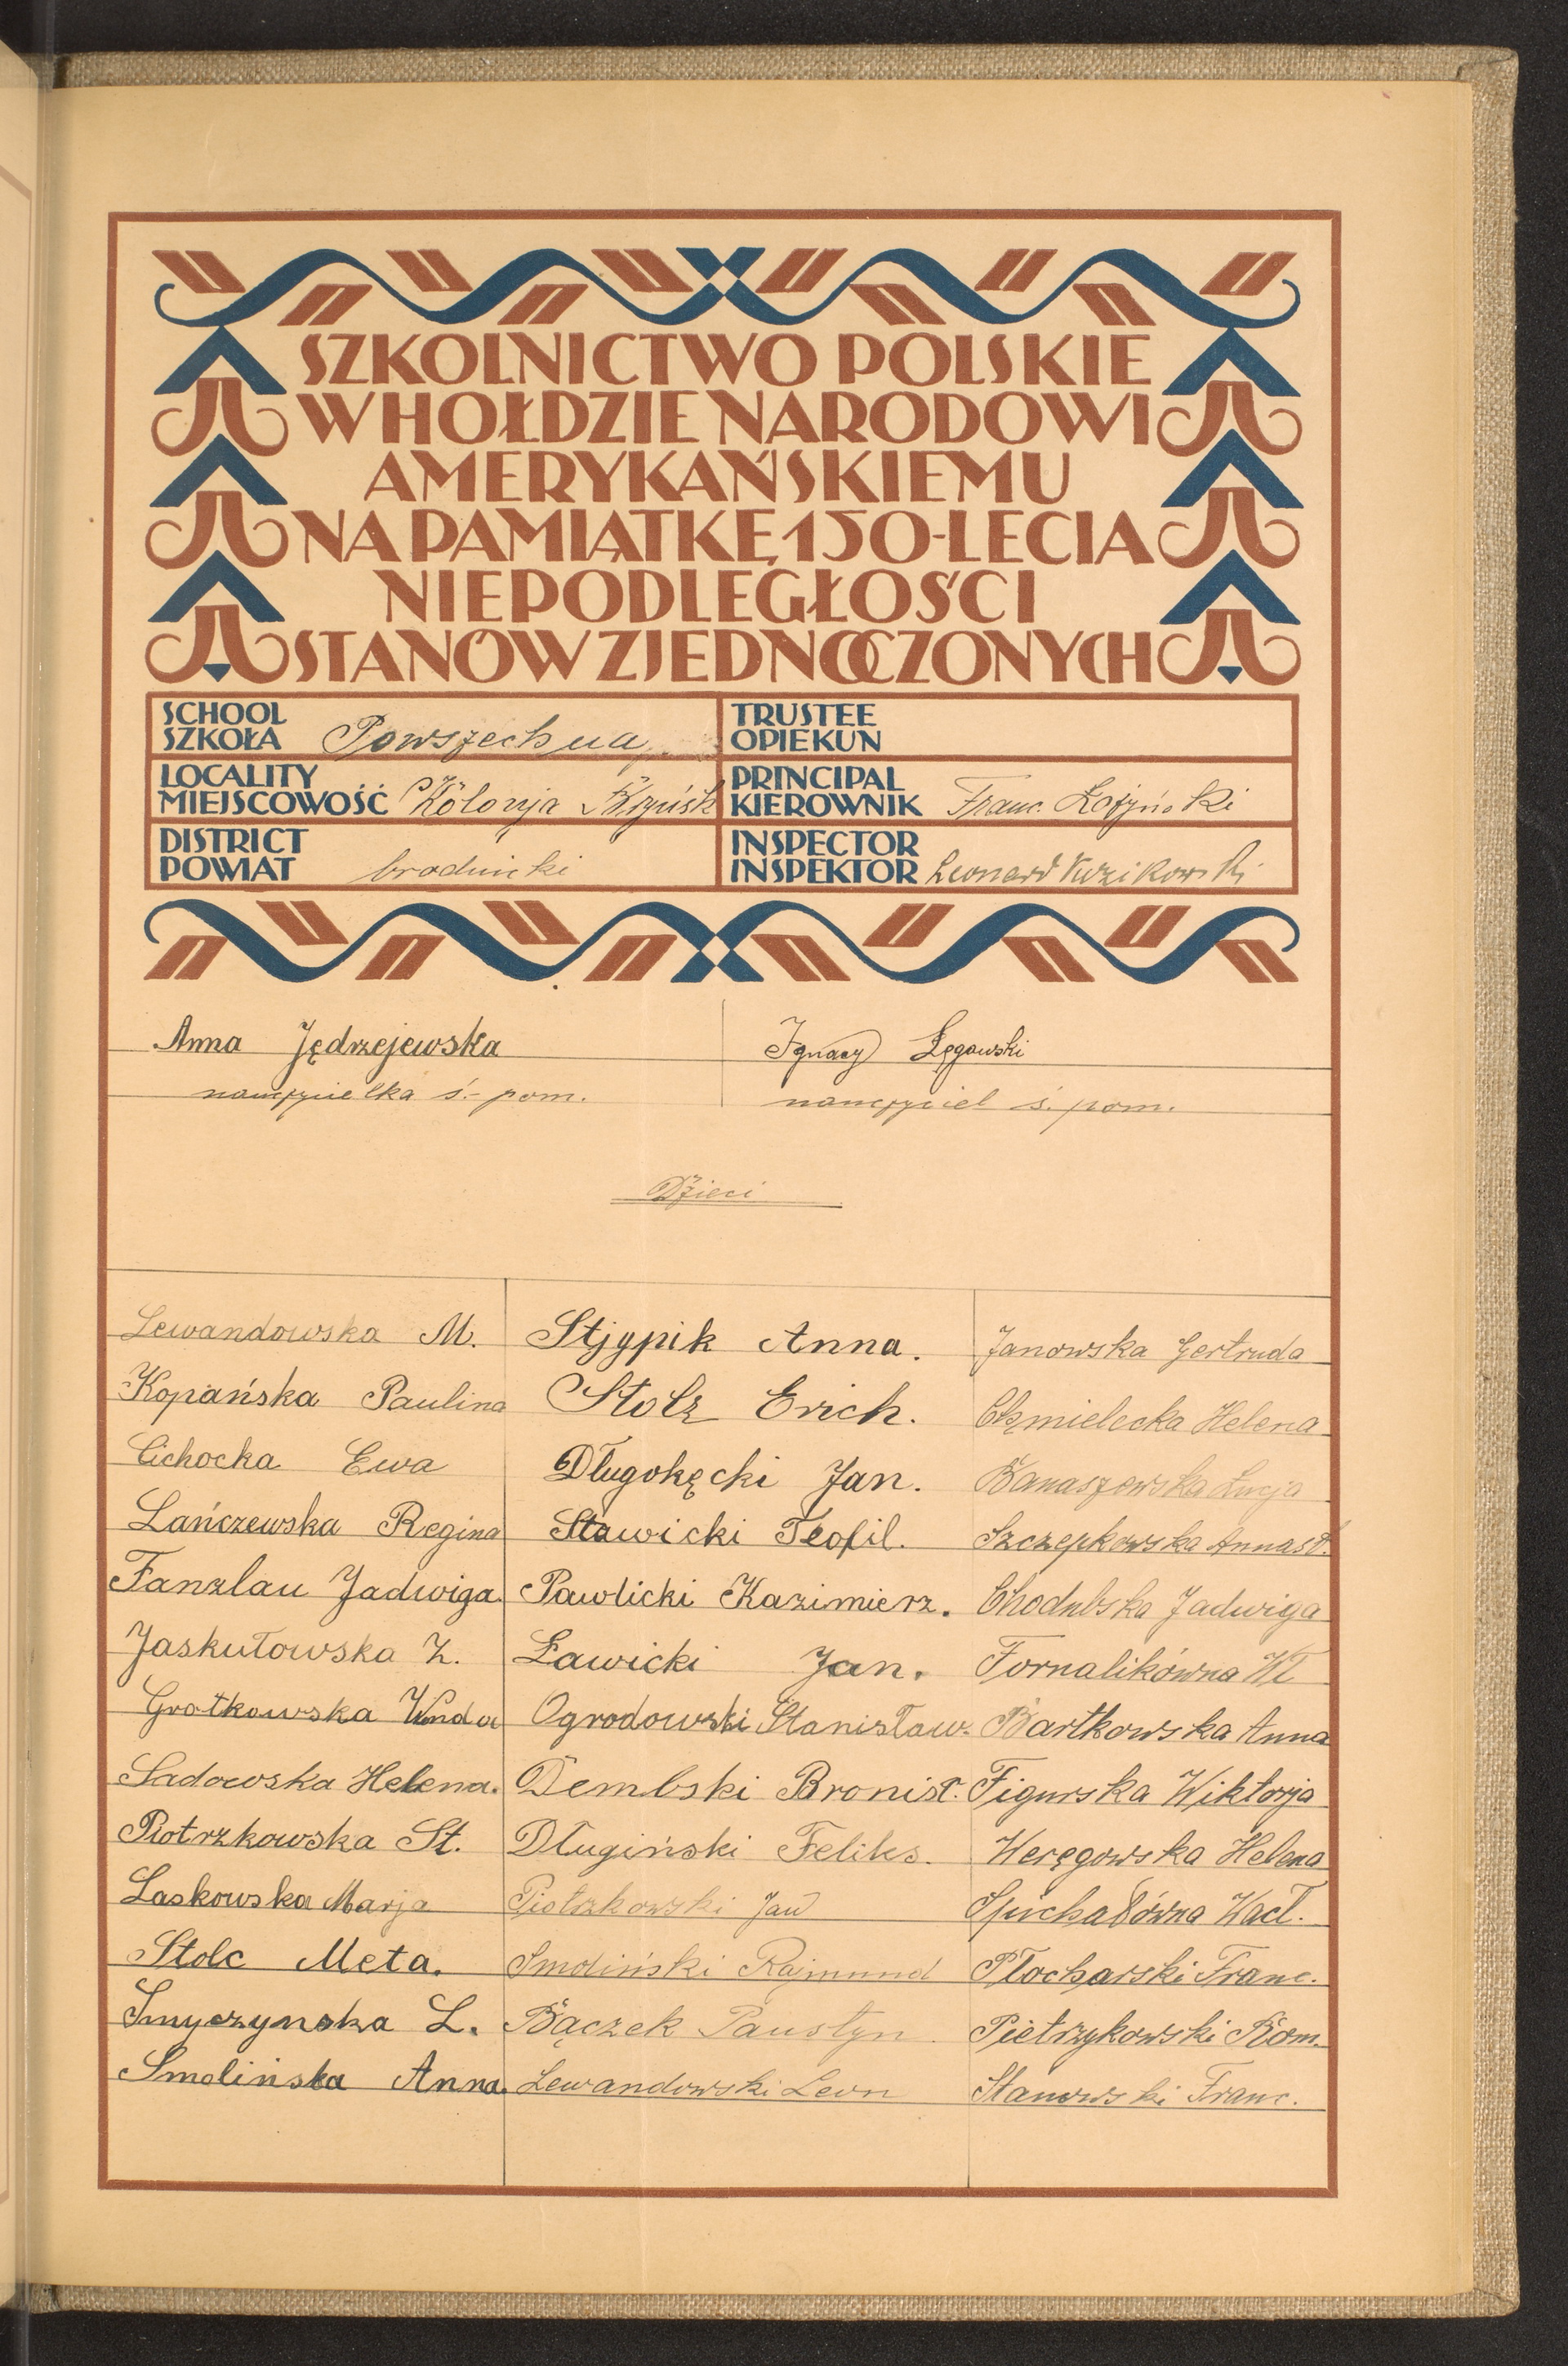 SZKOLNICTWO POLSKIE
W HOŁDZIE NARODOWI
AMERYKAŃSKIEMU
NA PAMIĄTKĘ 150-LECIA
NIEPODLEGŁOŚCI
STANÓW ZJEDNOCZONYCH
SCHOOL
SZKOŁA Powszechna
TRUSTEE
OPIEKUN
LOCALITY
MIEJSCOWOŚĆ Kolonja
PRINCIPAL
KIEROWNIK Franc. Łożyński
DISTRICT
POWIAT brodnicki
INSPECTOR
INSPEKTOR Leonard
Anna Jędrzejewska
nauczycielka ś.- pom.
Ignacy Łęgowski
nauczyciel ś. pom.
Dzieci
Lewandowska M. Stjypik Anna. Janowska Gertruda
Kopańska Paulina Stolz Erich. Chmielecka Helena
Cichocka Ewa Długokęcki Jan. Banaszewska Łucja
Lańczewska Regina Sławicki Teofil. Szczepkowska Anna St.
Fanzlau Jadwiga. Pawlicki Kazimierz. Chodubska Jadwiga
Jaskułowska Z. Ławicki Jan. Fornalikówna Wł
Grotkowska Wanda Ogrodowski Stanisław. Bartkowska Anna
Sadowska Helena. Dembski Bronisł. Figurska Wiktorja
Piotrzkowska St. Długiński Feliks. Weręgowska Helena
Laskowska Marja Piotrzkowski Jan Spuchałówna Wacł.
Stolc Meta. Smoliński Rajmund Płocharski Franc.
Smyczynska L. Bączek Faustyn. Pietrzykowski Rom.
Smolińska Anna. Lewandowski Leon Stanowski Franc.